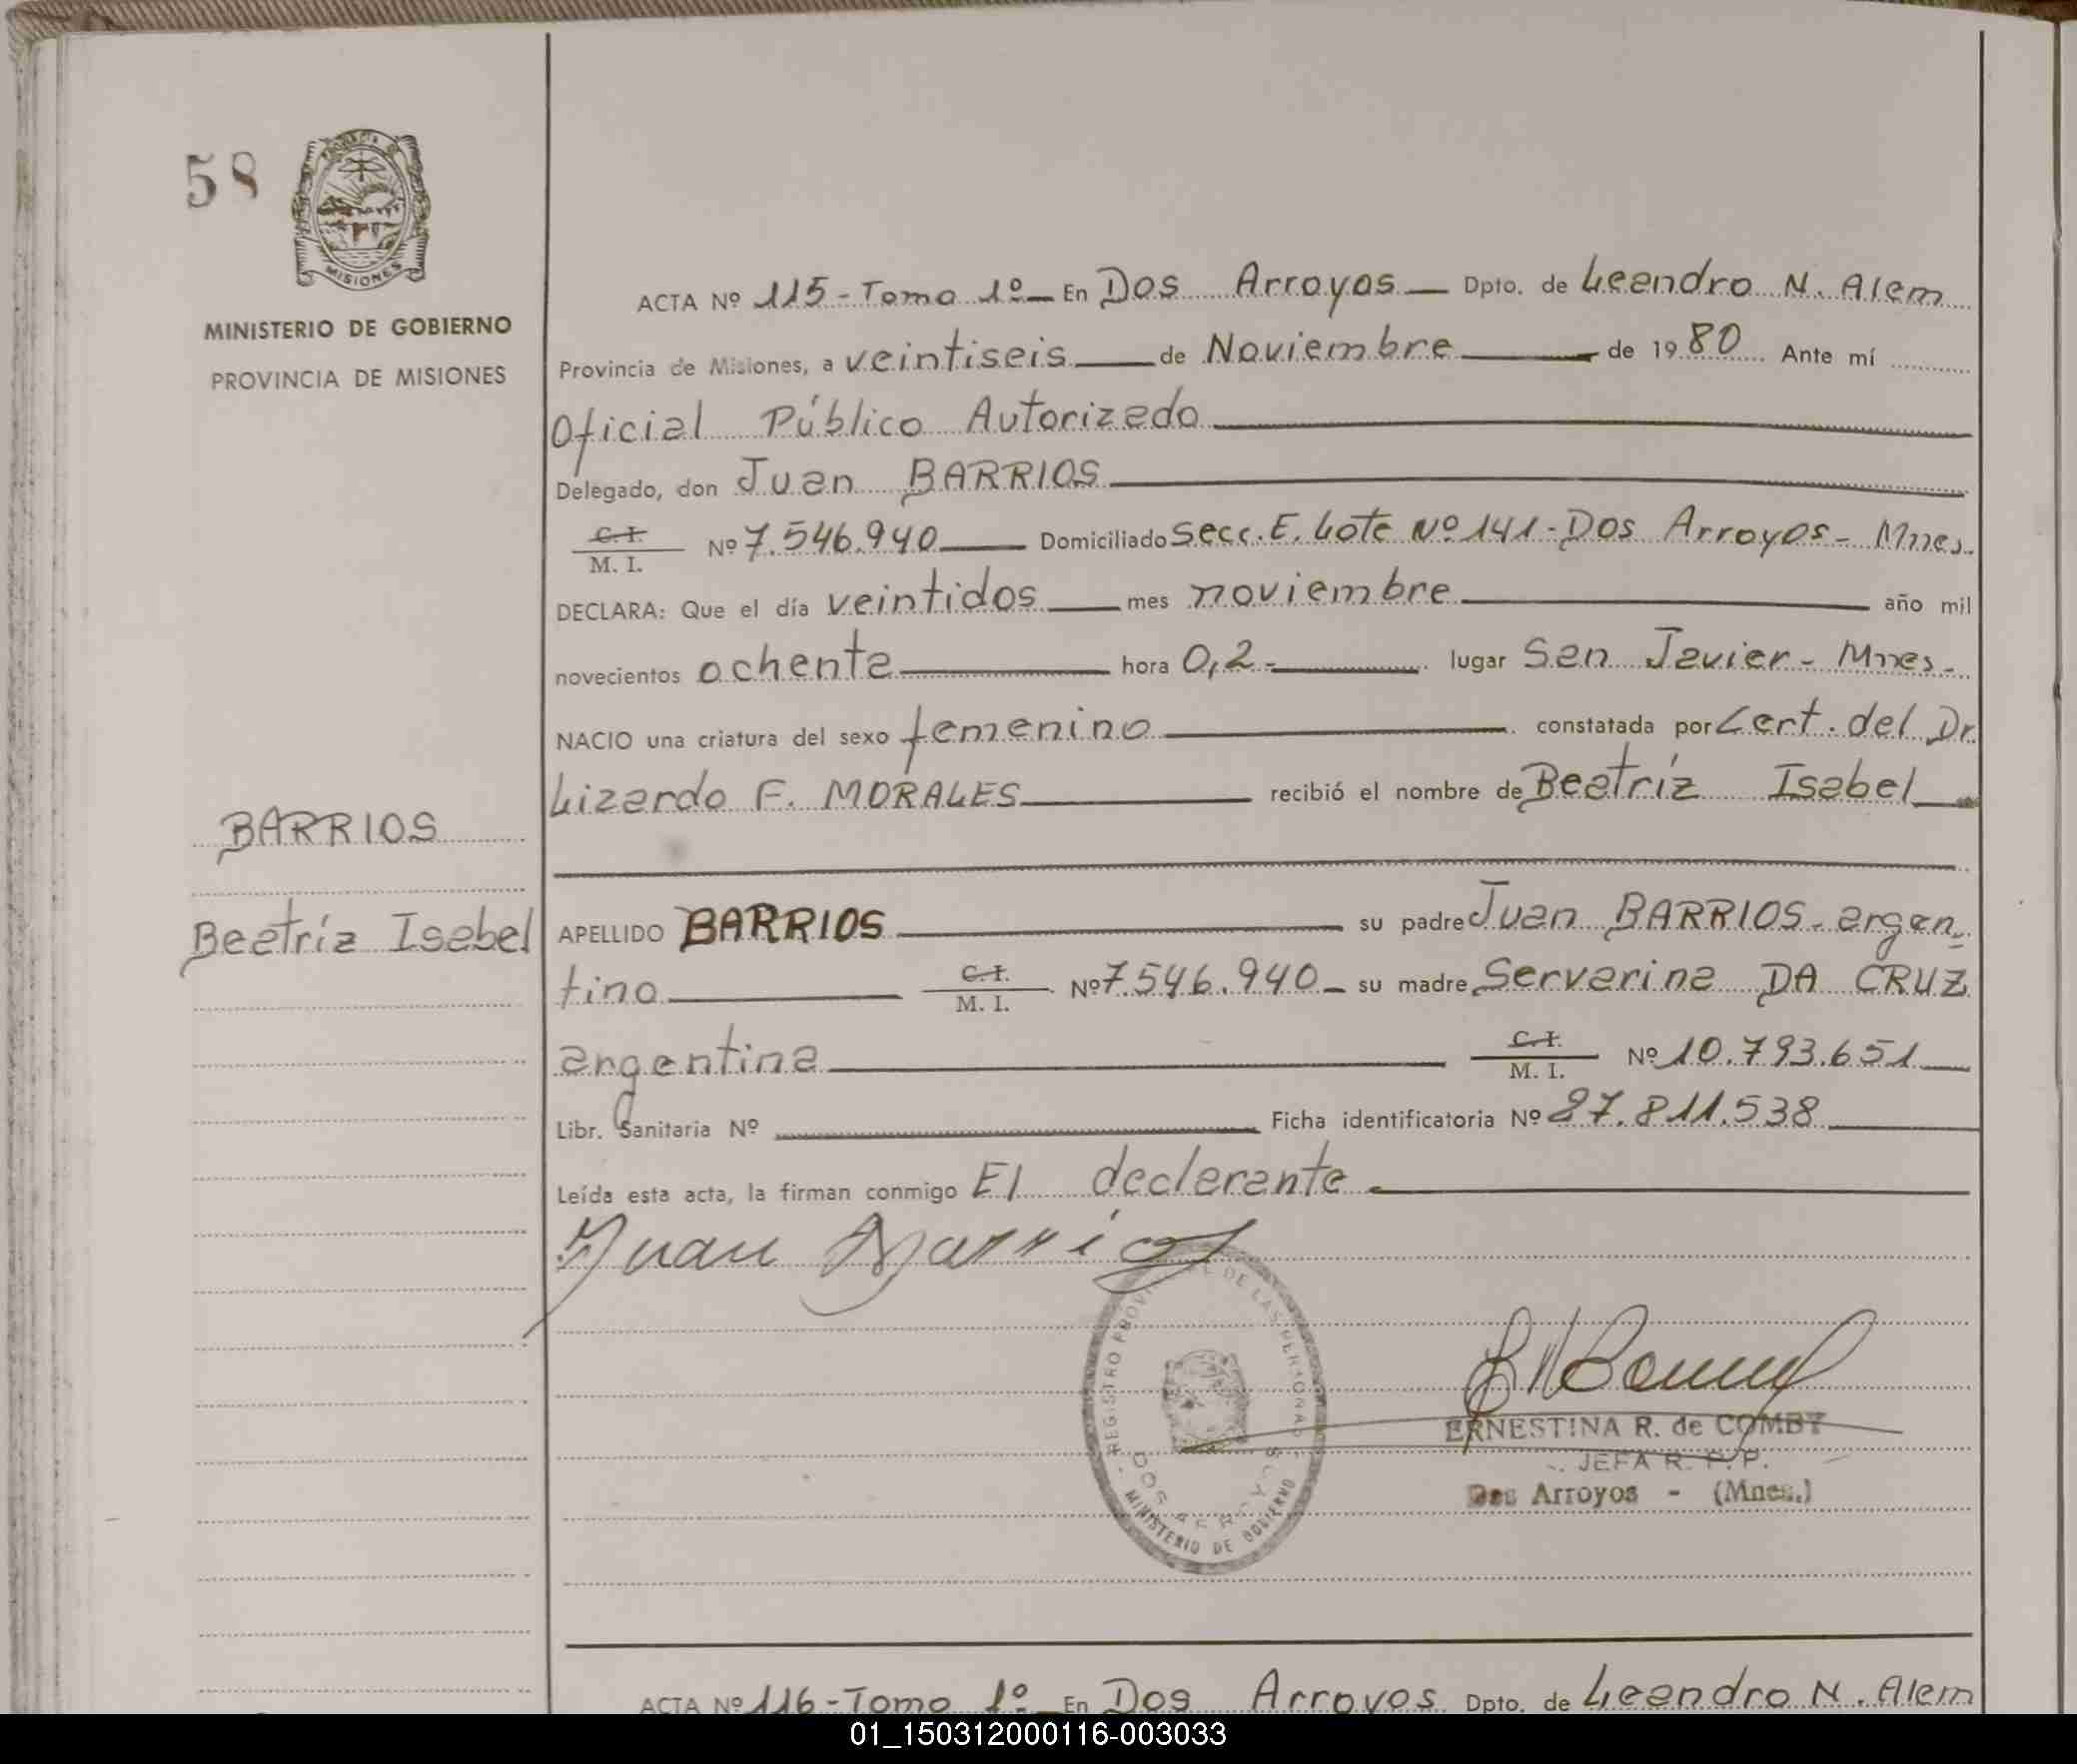 58
MISIONES
MINISTERIO DE GOBIERNO
PROVINCIA DE MISIONES
ACTA Nº 115 - Tomo 1º En Dos Arroyos Dpto. de Leandro N. Alem
Provincia de Misiones, a veintiseis de Noviembre de 1980 Ante mí
Oficial Público Autorizado
Delegado, don Juan BARRIOS
C.I. M. I. Nº 7.546.940 Domiciliado Secc. E. Lote Nº 141 - Dos Arroyos - Mnes.
DECLARA: Que el día veintidos mes noviembre año mil
novecientos ochenta hora 0,2.- lugar San Javier - Mnes -
NACIO una criatura del sexo femenino constatada por Cert. del Dr.
Lizardo F. MORALES recibió el nombre de Beatríz Isabel
BARRIOS
Beatríz Isabel
APELLIDO BARRIOS su padre Juan BARRIOS - argen-
tino C.I. M. I. Nº 7.546.940 su madre Servarina DA CRUZ
argentina C.I. M. I. Nº 10.793.651
Libr. Sanitaria Nº Ficha identificatoria Nº 27.811.538
Leída esta acta, la firman conmigo El declarante
Juan Barrios
REGISTRO PROVINCIAL DE LAS PERSONAS
DOS ARROYOS
MINISTERIO DE GOBIERNO
ERNESTINA R. de COMBY
JEFA R. P. P.
Dos Arroyos - (Mnes.)
ACTA Nº 116 - Tomo 1º En Dos Arroyos Dpto. de Leandro N. Alem
01_150312000116-003033